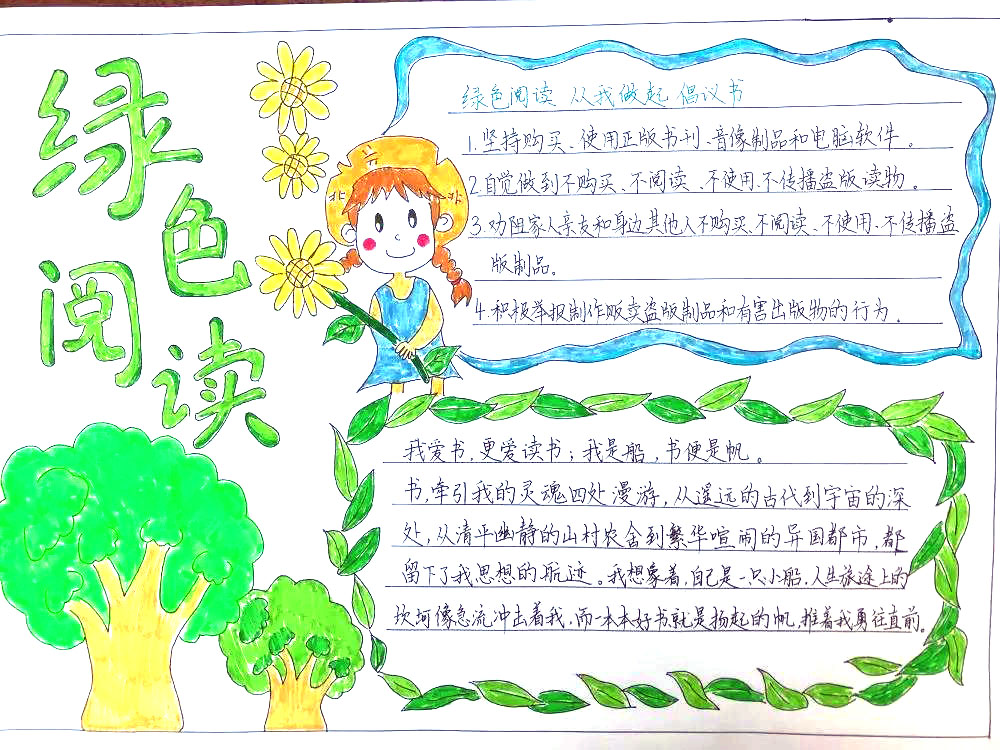 绿色阅读
绿色阅读 从我做起 倡议书
1.坚持购买、使用正版书刊、音像制品和电脑软件。
2.自觉做到不购买、不阅读、不使用、不传播盗版读物。
3.劝阻家人亲友和身边其他人不购买、不阅读、不使用、不传播盗
版制品。
4.积极举报制作贩卖盗版制品和有害出版物的行为。
我爱书，更爱读书；我是船，书便是帆。
书，牵引我的灵魂四处漫游，从遥远的古代到宇宙的深
处，从清平幽静的山村农舍到繁华喧闹的异国都市，都
留下了我思想的航迹。我想象着，自己是一只小船，人生旅途上的
坎坷像急流冲击着我，而一本本好书就是扬起的帆，推着我勇往直前。